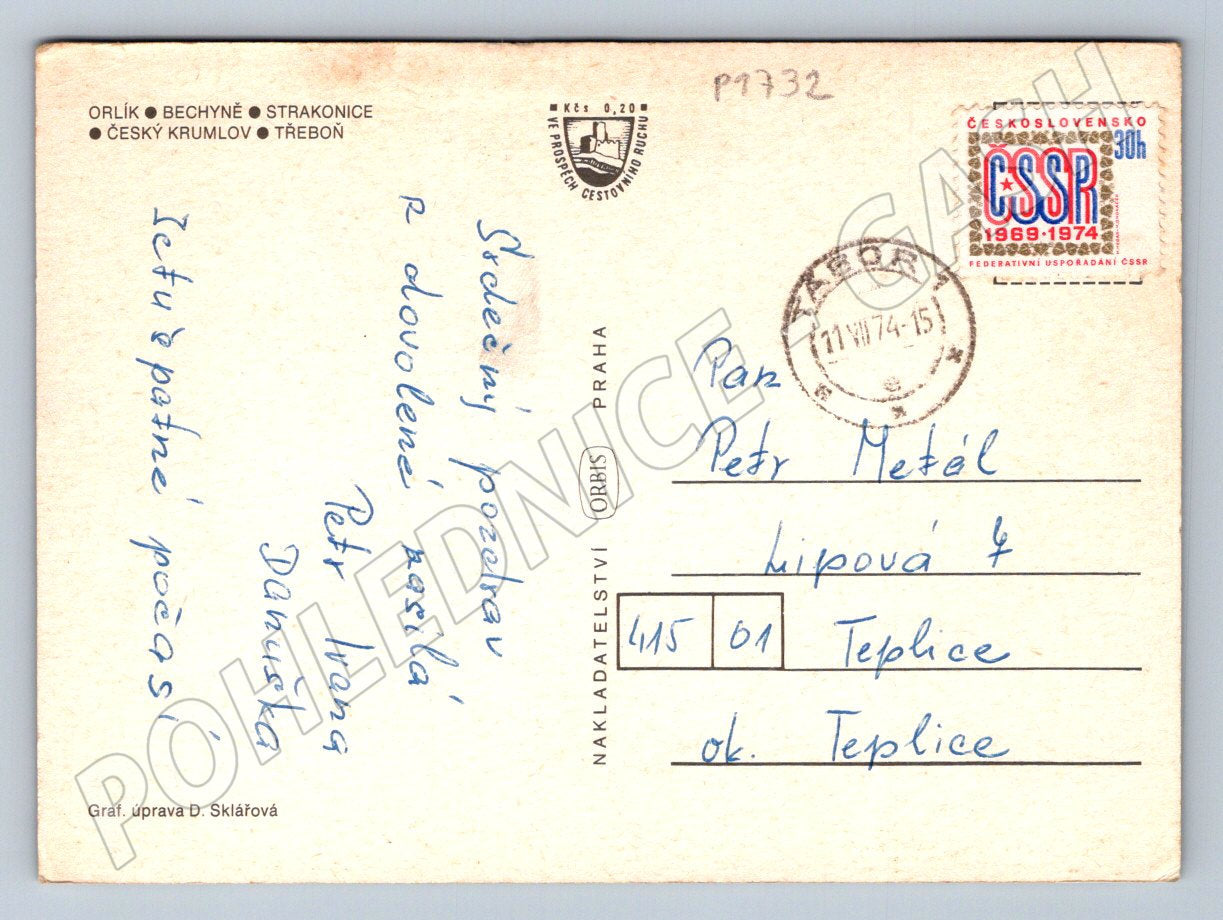 P1732
ORLÍK ● BECHYNĚ ● STRAKONICE
● ČESKÝ KRUMLOV ● TŘEBOŇ
Kčs 0,20
VE PROSPĚCH CESTOVNÍHO RUCHU
ČESKOSLOVENSKO
30h
ČSSR
1969·1974
FEDERATIVNÍ USPOŘÁDÁNÍ ČSSR
TÁBOR 1
11.VII.74-15
e
Srdečný pozdrav
z dovolené zasílá
Petr Ivana
Danuška
Je tu špatné počasí
NAKLADATELSTVÍ ORBIS PRAHA
Pan
Petr Metál
Lipová 7
415 01 Teplice
ok. Teplice
Graf. úprava D. Sklářová
POHLEDNICE - GASH